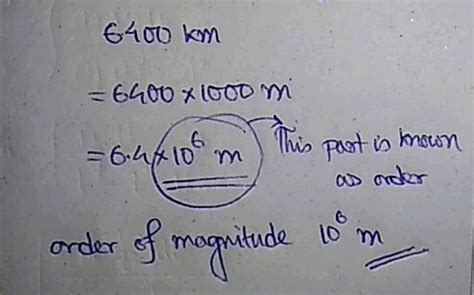 6400 km
= 6400 × 1000 m
= 6.4 × 10⁶ m This part is known
as order
order of magnitude 10⁶ m